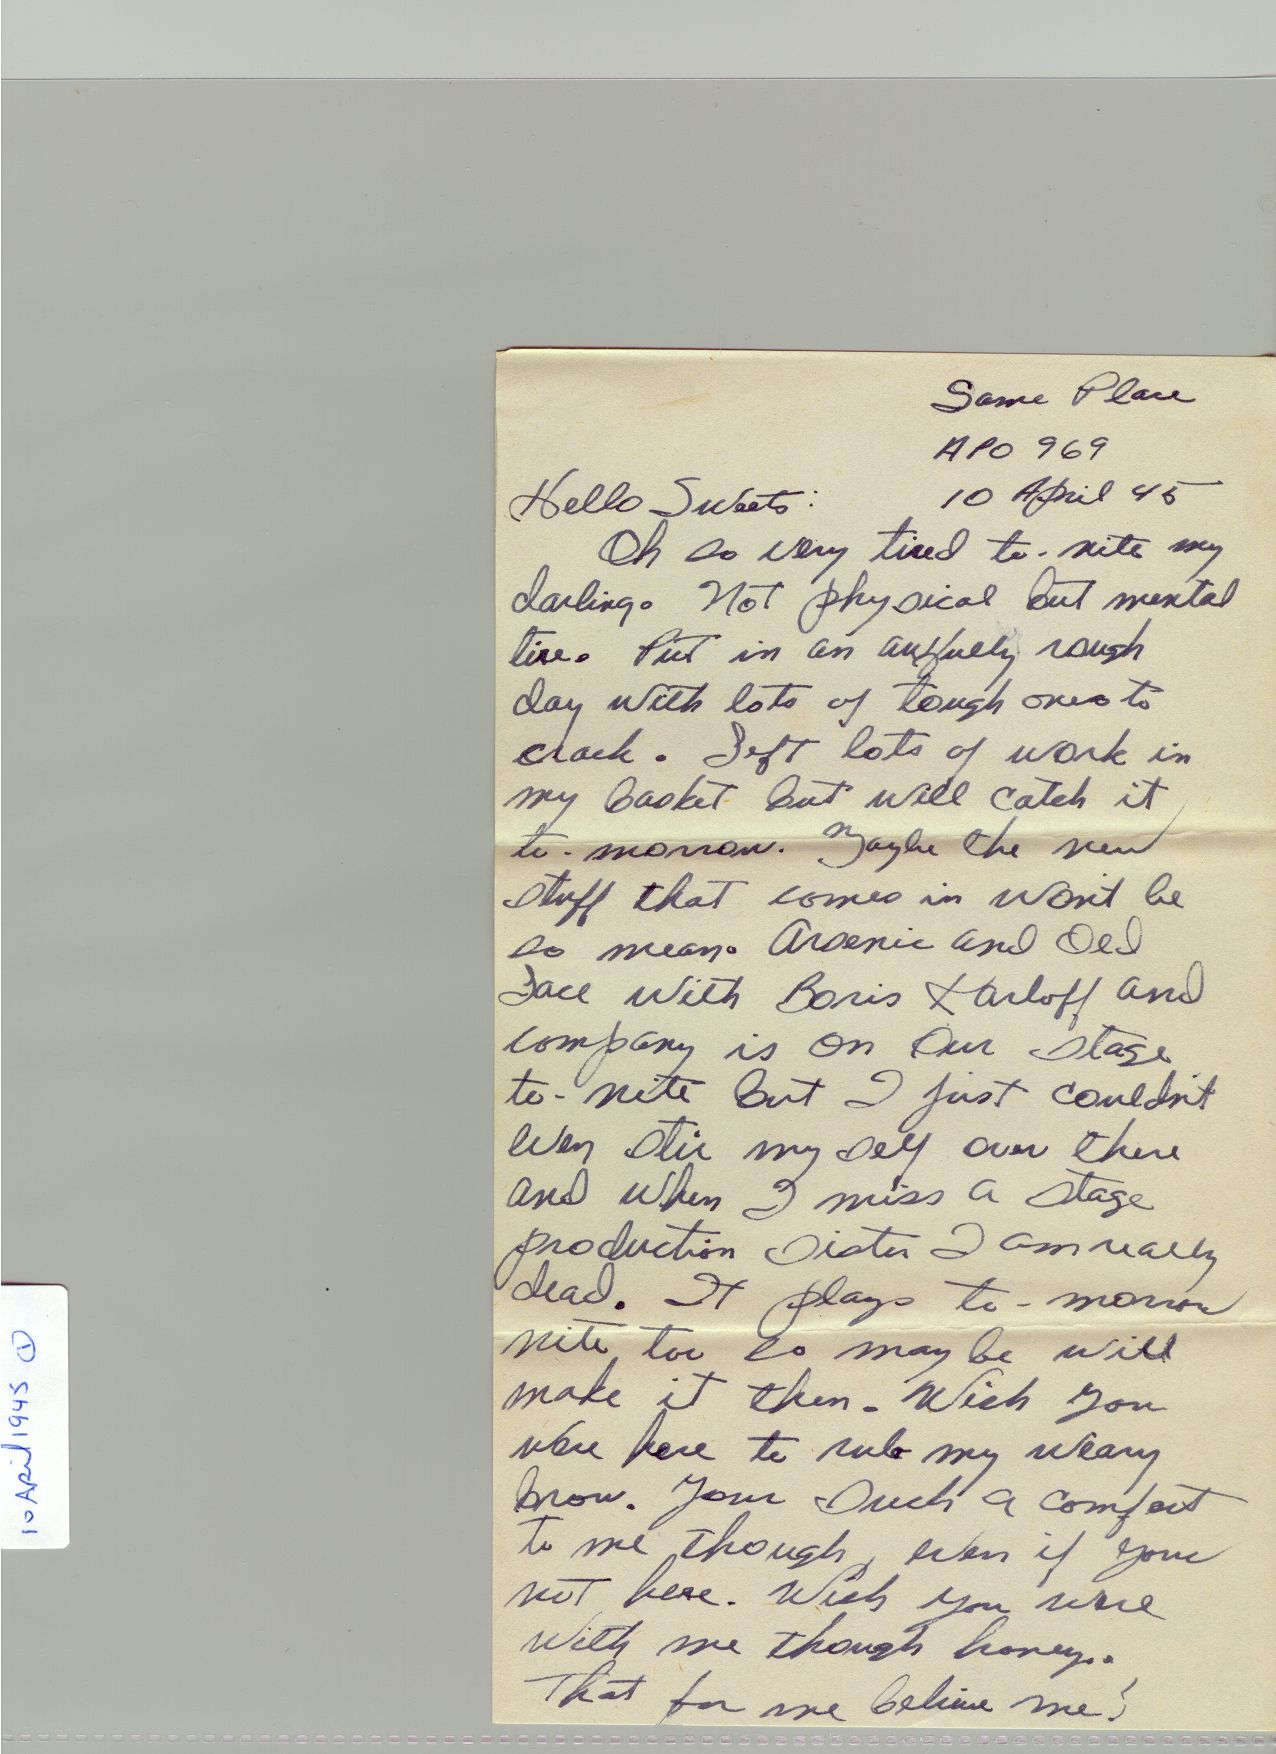 Same Place
APO 969
10 April 45
Hello Sweets:
Oh so very tired to-nite my
darling. Not physical but mental
tire. Put in an awfully rough
day with lots of tough ones to
crack. Left lots of work in
my basket but will catch it
to-morrow. Maybe the new
stuff that comes in won't be
so mean. Arsenic and Old
Lace with Boris Karloff and
company is on our stage
to-nite but I just couldn't
even stir my self over there
and when I miss a stage
production sister I am really
dead. It plays to-morrow
nite too so may be will
make it then. Wish you
were here to rub my weary
brow. Your such a comfort
to me though, even if your
not here. Wish you were
with me though honey..
That for me believe me!
10 April 1945 ①